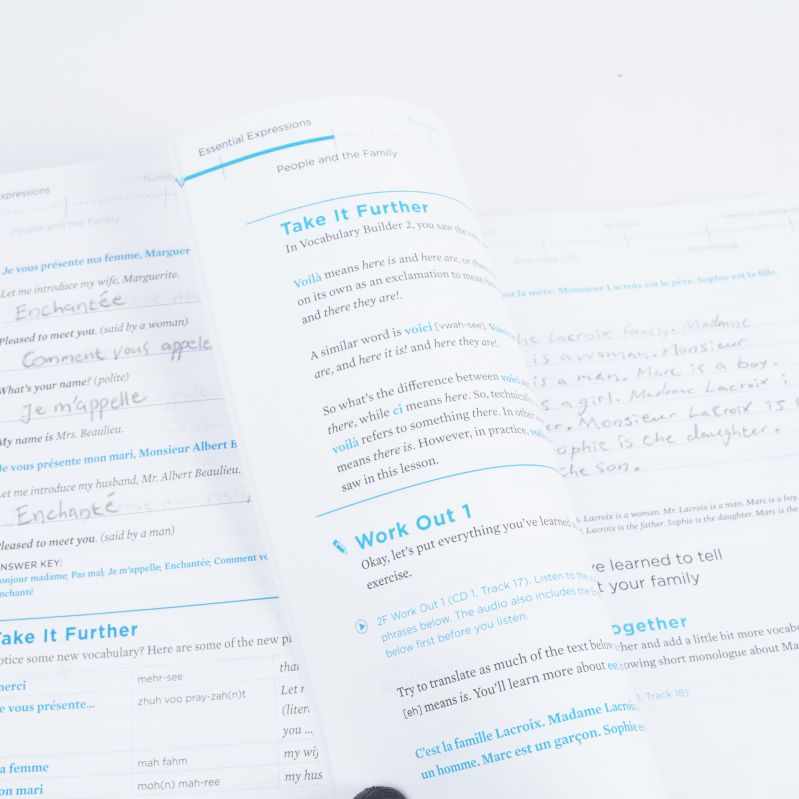 xpressions
Numb
People and the Family
Je vous présente ma femme, Marguer
Let me introduce my wife, Marguerite.
Enchantée
Pleased to meet you. (said by a woman)
Comment vous appele
What's your name? (polite)
Je m'appelle
My name is Mrs. Beaulieu.
Je vous présente mon mari, Monsieur Albert B
Let me introduce my husband, Mr. Albert Beaulieu.
Enchanté
Pleased to meet you. (said by a man)
ANSWER KEY:
onjour madame; Pas mal; Je m'appelle; Enchantée; Comment vo
nchanté
Take It Further
otice some new vocabulary? Here are some of the new pl
merci mehr-see than
e vous présente... zhuh voo pray-zah(n)t Let
(liter
you ...
a femme mah fahm my wi
on mari moh(n) mah-ree my hus
Essential Expressions
People and the Family
Take It Further
In Vocabulary Builder 2, you saw the
Voilà means here is and here are, or there
on its own as an exclamation to mean here
and there they are!.
A similar word is voici [vwah-see]. Voici
are, and here it is! and here they are!.
So what's the difference between voici
there, while ci means here. So, technically,
voilà refers to something there. In other
means there is. However, in practice, voilà
saw in this lesson.
Work Out 1
Okay, let's put everything you've learned
exercise.
2F Work Out 1 (CD 1, Track 17). Listen to the
phrases below. The audio also includes the
below first before you listen.
Try to translate as much of the text below
[eh] means is. You'll learn more about est
C'est la famille Lacroix. Madame Lacroix
un homme. Marc est un garçon. Sophie
Everyday Life
At Work
Socializing
est la mère. Monsieur Lacroix est le père. Sophie est la fille.
he Lacroix family. Madame
is a woman. Monsieur
is a man. Marc is a boy.
is a girl. Madame Lacroix i
er. Monsieur Lacroix is
ophie is the daughter.
the son.
s. Lacroix is a woman. Mr. Lacroix is a man. Marc is a boy.
. Lacroix is the father. Sophie is the daughter. Marc is the
ve learned to tell
t your family
ogether
ther and add a little bit more vocabu
owing short monologue about Ma
1, Track 18)